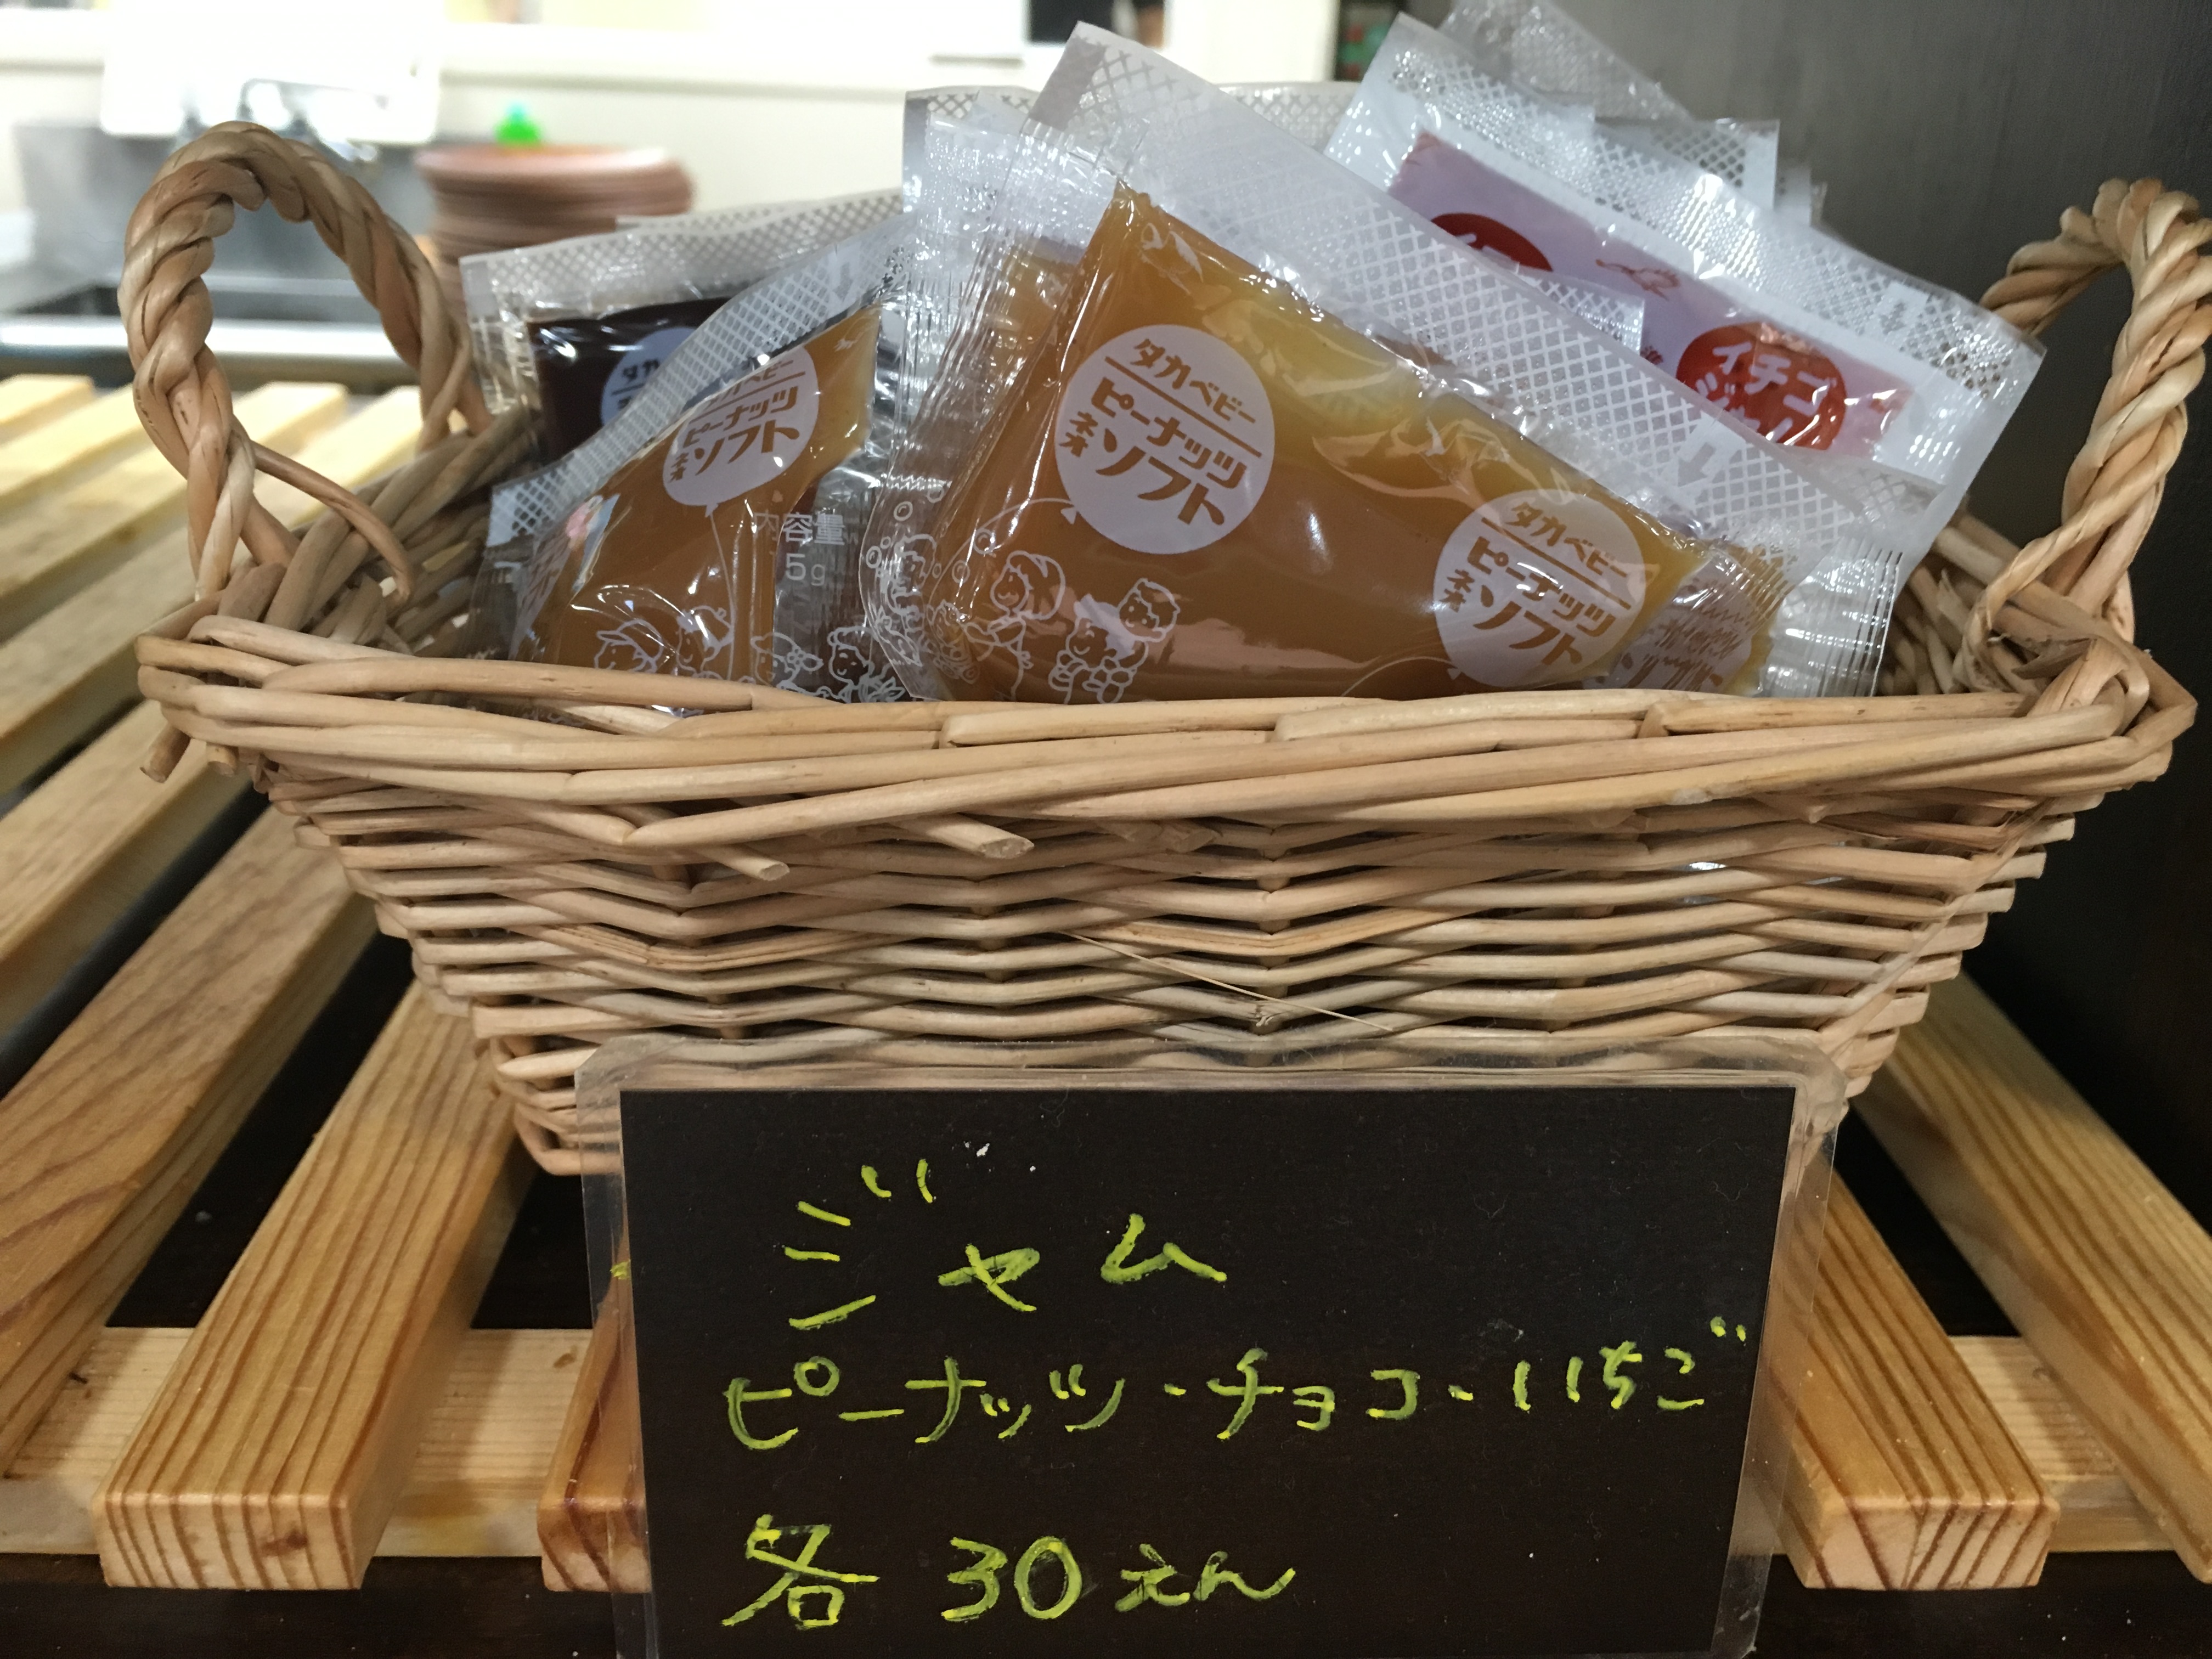 タカベビー
ピーナッツ
ネオ
ソフト
内容量
5g
タカベビー
ピーナッツ
ネオ
ソフト
タカベビー
ピーナッツ
ネオ
ソフト
イチゴ
ジャム
ピーナッツ・チョコ・いちご
各 30えん